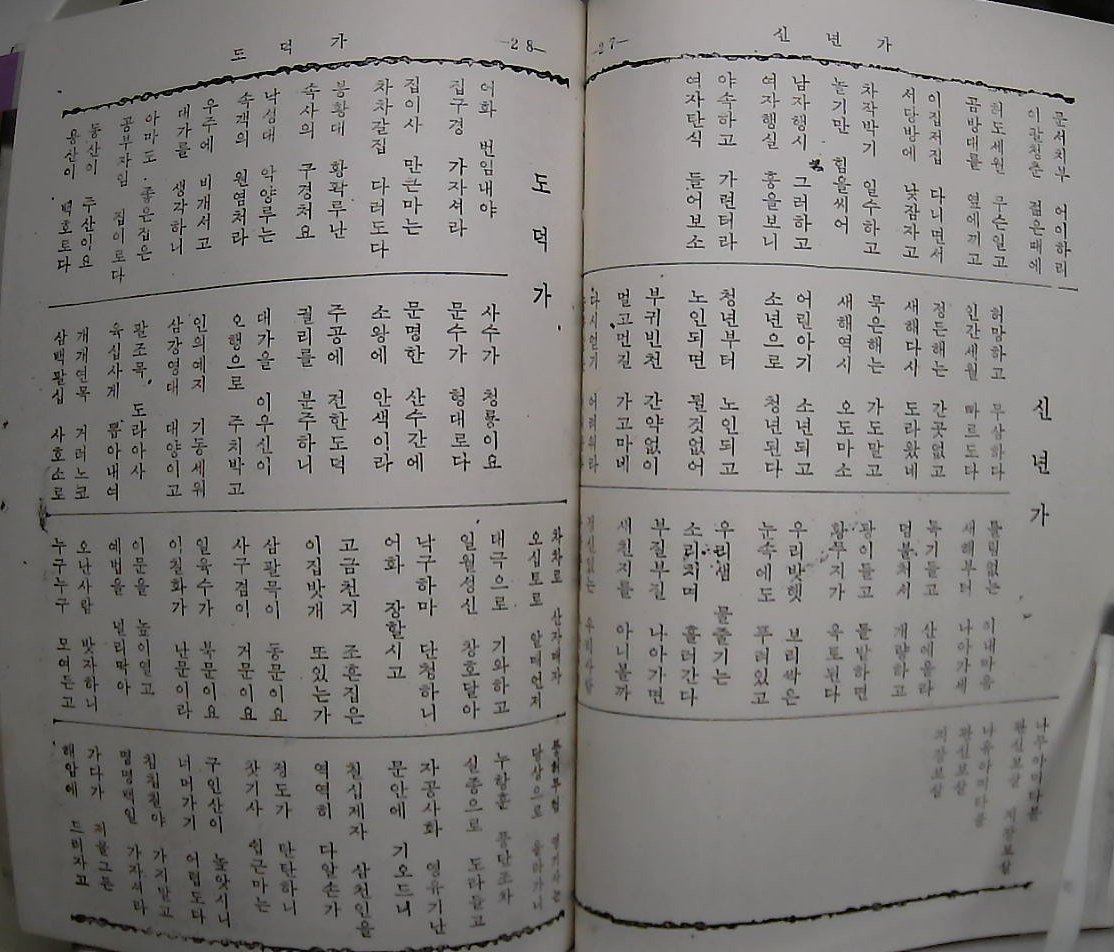 신년가
—27—
문서치부 어이하리
이팔청춘 젊은때에
허도세원 무슨일고
곰방대를 옆에끼고
이집저집 다니면서
서당방에 낮잠자고
차작박기 일수하고
놀기만 힘을씨어
남자행시 그러하고
여자행실 흉을보니
야속하고 가련터라
여자탄식 들어보소
신년가
허망하고 무상하다
인간세월 빠르도다
정든해는 간곳없고
새해다시 도라왔네
묵은해는 가도말고
새해역시 오도마소
어린아기 소년되고
소년으로 청년된다
청년부터 노인되고
노인되면 될것없어
부귀빈천 간약없이
멀고먼길 가고마네
다시얻기 어려워라
틀림없는 이내마음
새해부터 나아가세
톡기들고 산에올라
덤불처서 개량하고
광이들고 들발하면
황무지가 옥토된다
우리밧헷 보리싹은
눈속에도 푸러있고
우리샘 물줄기는
소리치며 흘러간다
부절부절 나아가면
새천지를 아니볼까
정신있는 우리사람
나무아미타불
관신보살 지장보살
나무아미타불
관신보살
지장보살
—28—
도덕가
도덕가
어화 번임내야
집구경 가자셔라
집이사 만큰마는
차차갈집 다러도다
봉황대 황곽루난
속사의 구경처요
낙성대 악양루는
속객의 원염처라
우주에 비개서고
대가를 생각하니
아마도 좋은집은
공부자임 집이로다
동산이 주산이요
용산이 백호토다
사수가 청룡이요
문수가 형대로다
문명한 산수간에
소왕에 안색이라
주공에 전한도덕
궐리를 분주하니
대가을 이우신이
오행으로 주치박고
인의예지 기동세워
삼강영대 대양이고
팔조목 도라아사
육십사계 뽑아내여
개개연목 거러노코
삼백팔십 사호소로
차차로 산자매자
오십토로 알매언지
태극으로 기와하고
일월성신 창호달아
낙구하마 단청하니
어화 장할시고
고금천지 조흔집은
이집밧개 또있는가
삼관목이 동문이요
사구검이 거문이요
일육수가 북문이요
이칠화가 난문이라
이문을 높이열고
예법을 널리딱아
오난사람 밧자하니
누구누구 모여든고
당상으로 올라가니
누항춘 풍단조차
실중으로 도라들고
자공사화 영유기난
문안에 기오드니
칠십제자 삼천인을
역역히 다알손가
정도가 탄탄하니
찻기사 쉽근마는
구인산이 높앗시니
너머가기 어렵도다
침침칠야 가지말고
명명백일 가자셔라
가다가 저물그든
해안에 드러자고